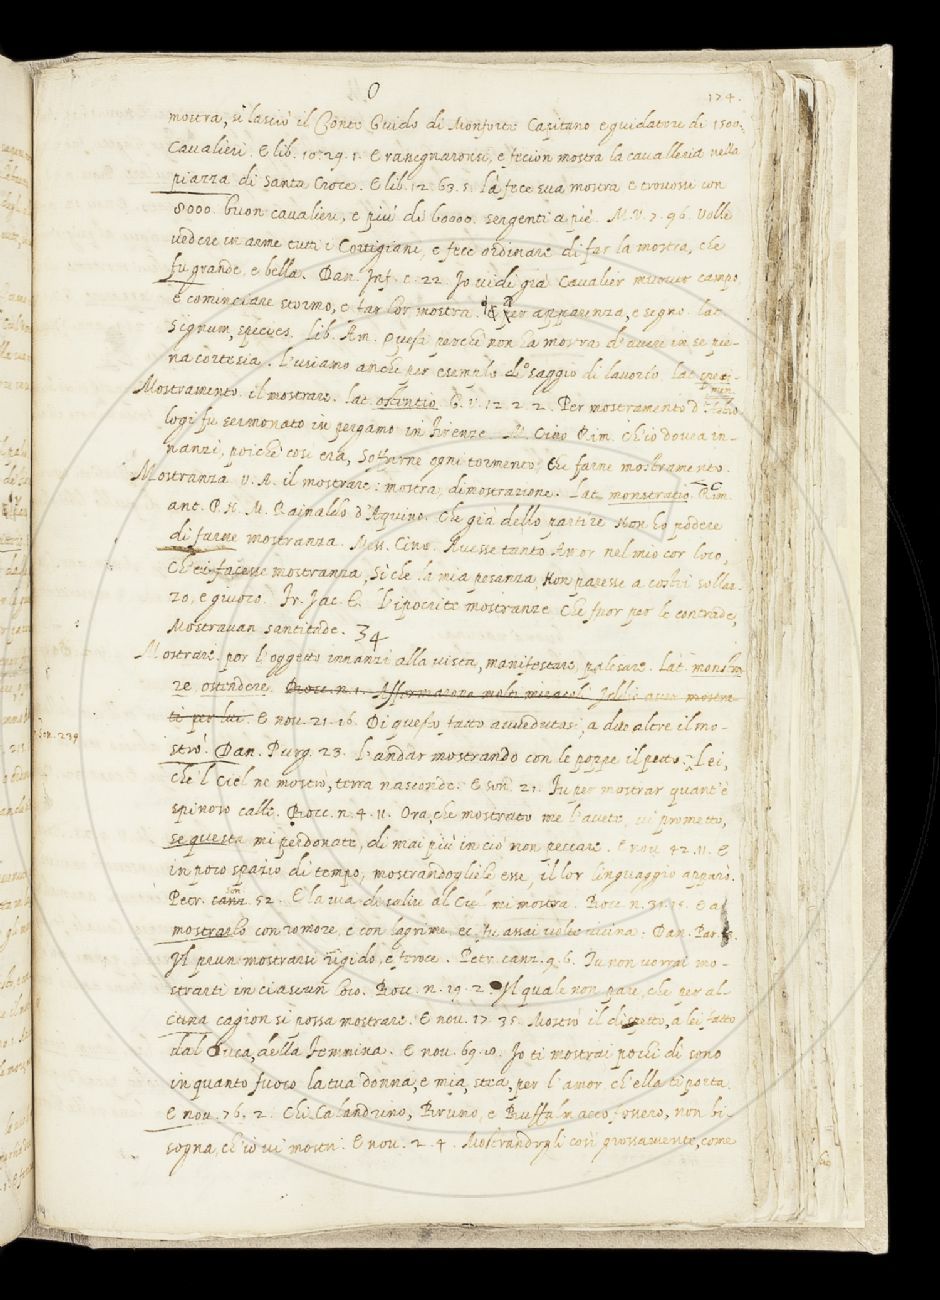 O
174.
mostra, si lasciò il Conte Guido di Monforte Capitano e guidatore di 1500.
Cavalieri. E lib. 10. 29. 1. E rasegnaronsi, e fecion mostra la cavalleria nella
piazza di Santa Croce. E lib. 12. 63. 5. là fece sua mostra e trovossi con
8000. buon cavalieri, e più di 60000. sergenti a piè. M. V. 7. 96. Volle
vedere in arme tutti i Cortigiani, e fece ordinare di far la mostra, che
fu grande, e bella. Dan. Inf. c. 22. Io vidi già Cavalier muover campo
e cominciare stormo, e far lor mostra. per apparenza, e segno. lat.
signum, species. Lib. Am. Questi perchè non ha mostra d'avere in se pie-
na cortesia. L'usiamo anche per esemplo o saggio di lavorìo. lat. speci-
men
Mostramento. il mostrare. lat. ostentio. G. V. 12. 2. 2. Per mostramento d'
logi fu sermonato in pergamo in Firenze. M. Cino Rim. Ch'io dovea in-
nanzi, poichè così era, Soffrirne ogni tormento, Che farne mostramento.
Mostranza V. A. il mostrare: mostra, dimostrazione. Lat. monstratio. Rim.
ant. P. N. M. Rainaldo d'Aquino. Che già dello partire Non ho podere
di farne mostranza. Mess. Cino. Avesse tanto Amor nel mio cor loco,
Ch'ei facesse mostranza, Sì che la mia pesanza, Non paresse a costui sollaz-
zo, e giuoco. Fr. Jac. T. L'ipocrite mostranze Che fuor per le contrade,
Mostravan santitade. 34
Mostrare. por l'oggetto innanzi alla vista, manifestare, palesare. Lat. monstra-
re, ostendere. Bocc. n. 1. Affermarono molti miracoli Iddio aver mostra-
ti per lui. E nov. 21. 16. Di questo fatto avvedutasi, a due altre il mo-
son. 239
strò. Dan. Purg. 23. L'andar mostrando con le poppe il petto. Lei,
che 'l Ciel ne mostrò, terra nasconde. E son. 21. Fu per mostrar quant'è
spinoso calle. Bocc. n. 4. 11. Ora che mostrato me l'avete, vi prometto,
se questa mi perdonate, di mai più in ciò non peccare. E nov. 42. 11. E
in poco spazio di tempo, mostrandogliele esse, il lor linguaggio apparò.
son.
Petr. canz. 52. E la via di salire al Ciel mi mostra. Bocc. n. 31. 15. E a
mostrarlo con romore, e con lagrime, ec. fu assai volte vicina. Dan. Par.
Il peun mostrarsi rigido, e feroce. Petr. canz. 9. 6. Tu non vorrai mo-
strarti in ciascun loco. Bocc. n. 19. 2. Il quale non pare, che per al-
cuna cagion si possa mostrare. E nov. 17. 35. Mostrò il dispetto, a lei fatto
dal Duca, della Femmina. E nov. 69. Io ti mostrai pochi dì sono
in quanto fuoco la tua donna, e mia, stea, per l'amor, ch'ella ti porta.
E nov. 76. 2. Chi Calandrino, Bruno, e Buffalmacco fossero, non bi-
sogna, ch'io vi mostri. E nov. 2. 4. Mostrandogli così grossamente, come